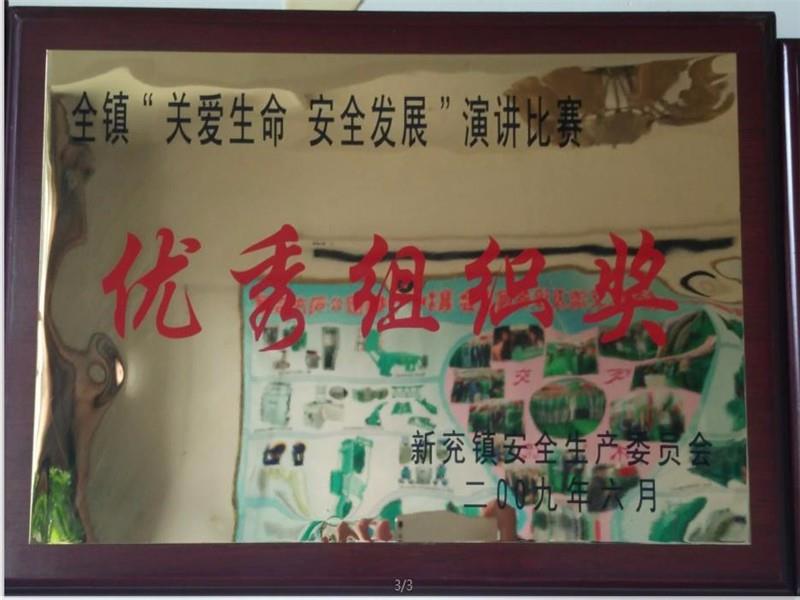 全镇“关爱生命 安全发展”演讲比赛
优秀组织奖
新兖镇安全生产委员会
二00九年六月
3/3